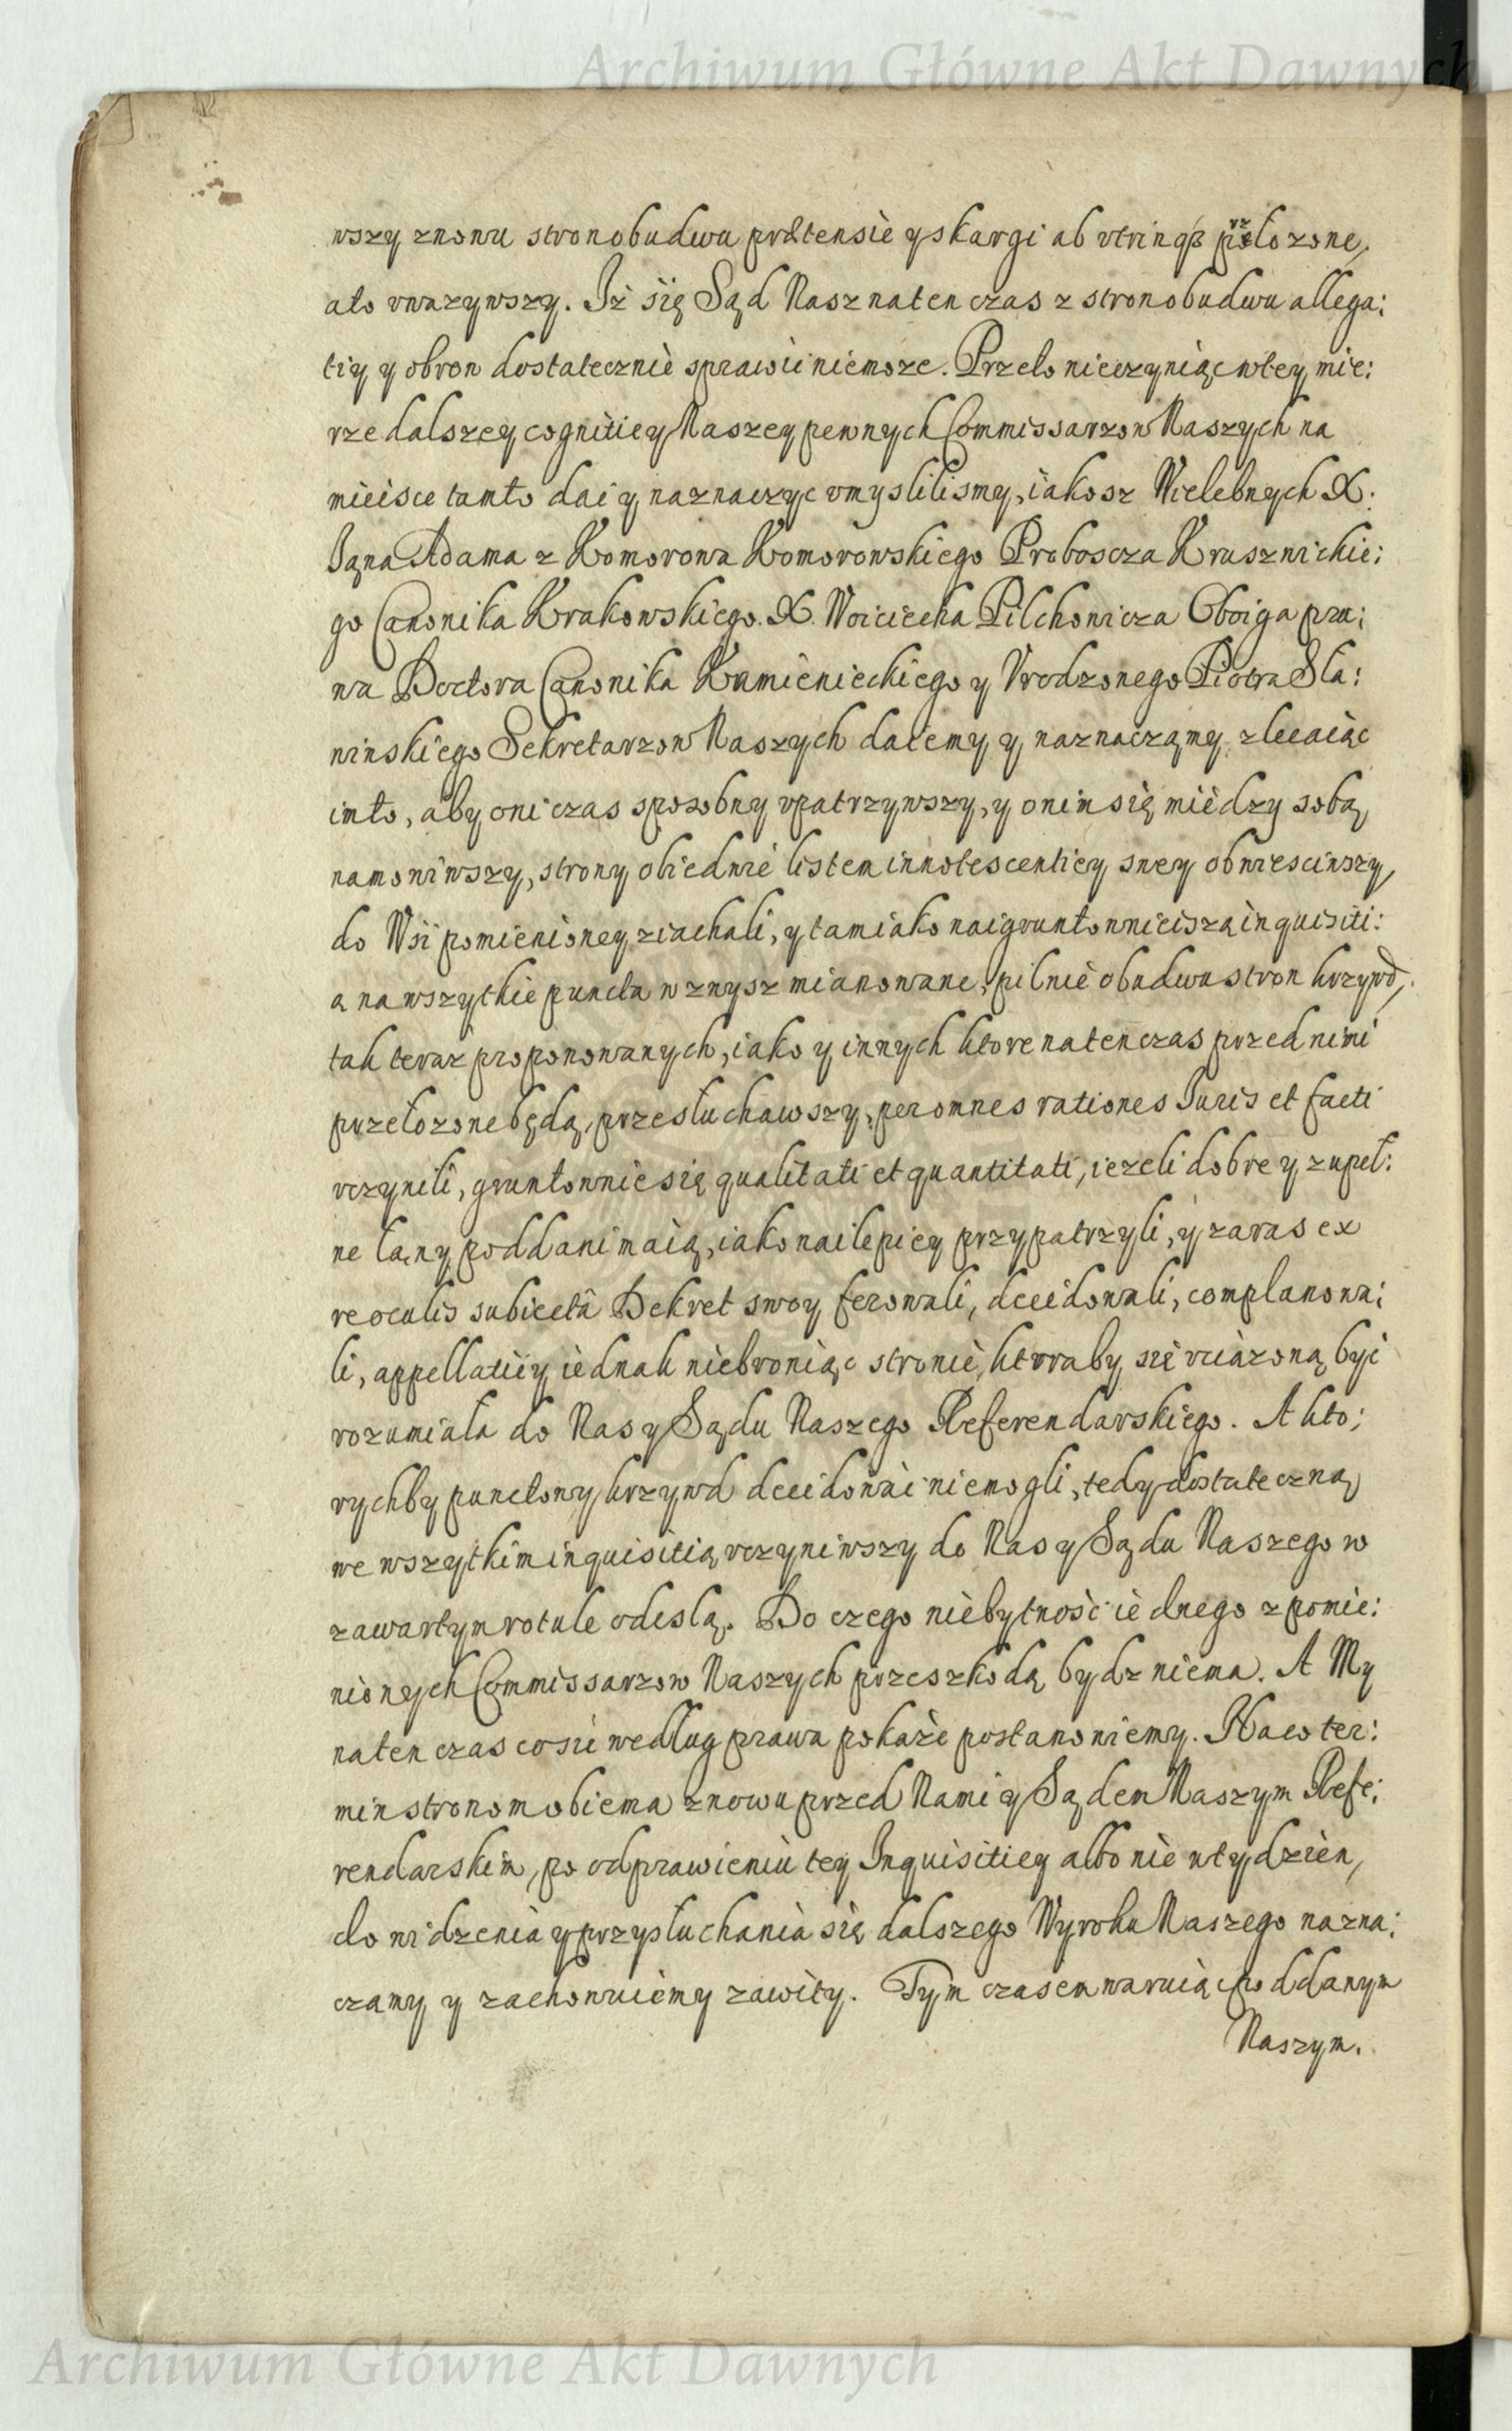 Archiwum Główne Akt Dawnych
wszy znowu stron obudwu prætensie y skargi ab vtrinqß przełozone,
a to vwazywszy. Iż się Sąd Nasz na ten czas z stron obudwu allega:
tiy y obron dostatecznie sprawić niemoze. Przeto nieczyniąc w tey mie:
rze dalszey cognitiey Naszey pewnych Commissarzow Naszych na
mieisce tamto dać y naznaczyc vmyslilismy, iakosz Wielebnych X.
Jana Adama z Komorowa Komorowskiego Proboscza Kruszwickie:
go Canonika Krakowskiego. X. Woiciecha Pilchowicza Oboiga pra:
wa Doctora Canonika Kamienieckiego y Vrodzonego Piotra Sła:
winskiego Sekretarzow Naszych daiemy y naznaczamy, zlecaiąc
im to, aby oni czas sposobny vpatrzywszy, y onim się między sobą
namowiwszy, strony obiedwie listem innotescentiey swey obwiesciwszy,
do Wsi pomienioney ziachali, y tam iako naigruntownieiszą inquisiti:
ą na wszytkie puncta wznysz mianowane, pilnie obudwu stron krzywd,
tak teraz proponowanych, iako y innych ktore na ten czas przed nimi
przełozone będą, przesłuchawszy, per omnes rationes Juris et facti
vczynili, gruntownie się qualitati et quantitati, iezeli dobre y zupeł:
ne łany poddani maią, iako nailepiey przypatrzyli, y zaras ex
re oculis subiectâ Dekret swoy ferowali, decidowali, complanowa:
li, appellatiey iednak niebroniąc stronie, ktoraby się vciązoną być
rozumiała do Nas y Sądu Naszego Referendarskiego. A kto:
rychby punctow y krzywd decidować niemogli, tedy dostateczną
we wszytkim inquisitią vczyniwszy do Nas y Sądu Naszego w
zawartym rotule odeslą. Do czego niebytność iednego z pomie:
nionych Commissarzow Naszych przeszkodą bydz niema. A My
na ten czas co sie według prawa pokaże postanowiemy. Na co ter:
min stronom obiema znowu przed Nami y Sądem Naszym Refe:
rendarskim, po odprawieniu tey Inquisitiey albo nie w tydzien,
do widzenia y przysłuchania się dalszego Wyroku Naszego nazna:
czamy y zachowuiemy zawity. Tym czasem waruiąc poddanym
Naszym.
Archiwum Główne Akt Dawnych